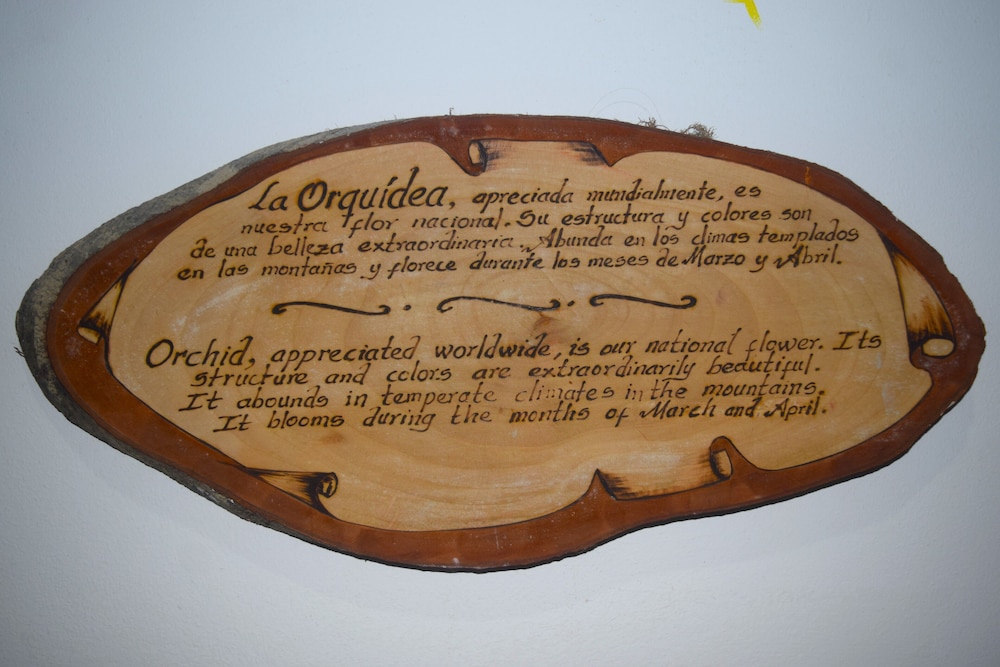 La Orquídea, apreciada mundialmente, es
nuestra flor nacional. Su estructura y colores son
de una belleza extraordinaria. Abunda en los climas templados
en las montañas y florece durante los meses de Marzo y Abril.
Orchid, appreciated worldwide, is our national flower. Its
structure and colors are extraordinarily beautiful.
It abounds in temperate climates in the mountains.
It blooms during the months of March and April.